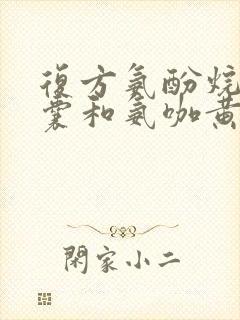 復方氨酚烷
囊和氨咖黃
閑家小二